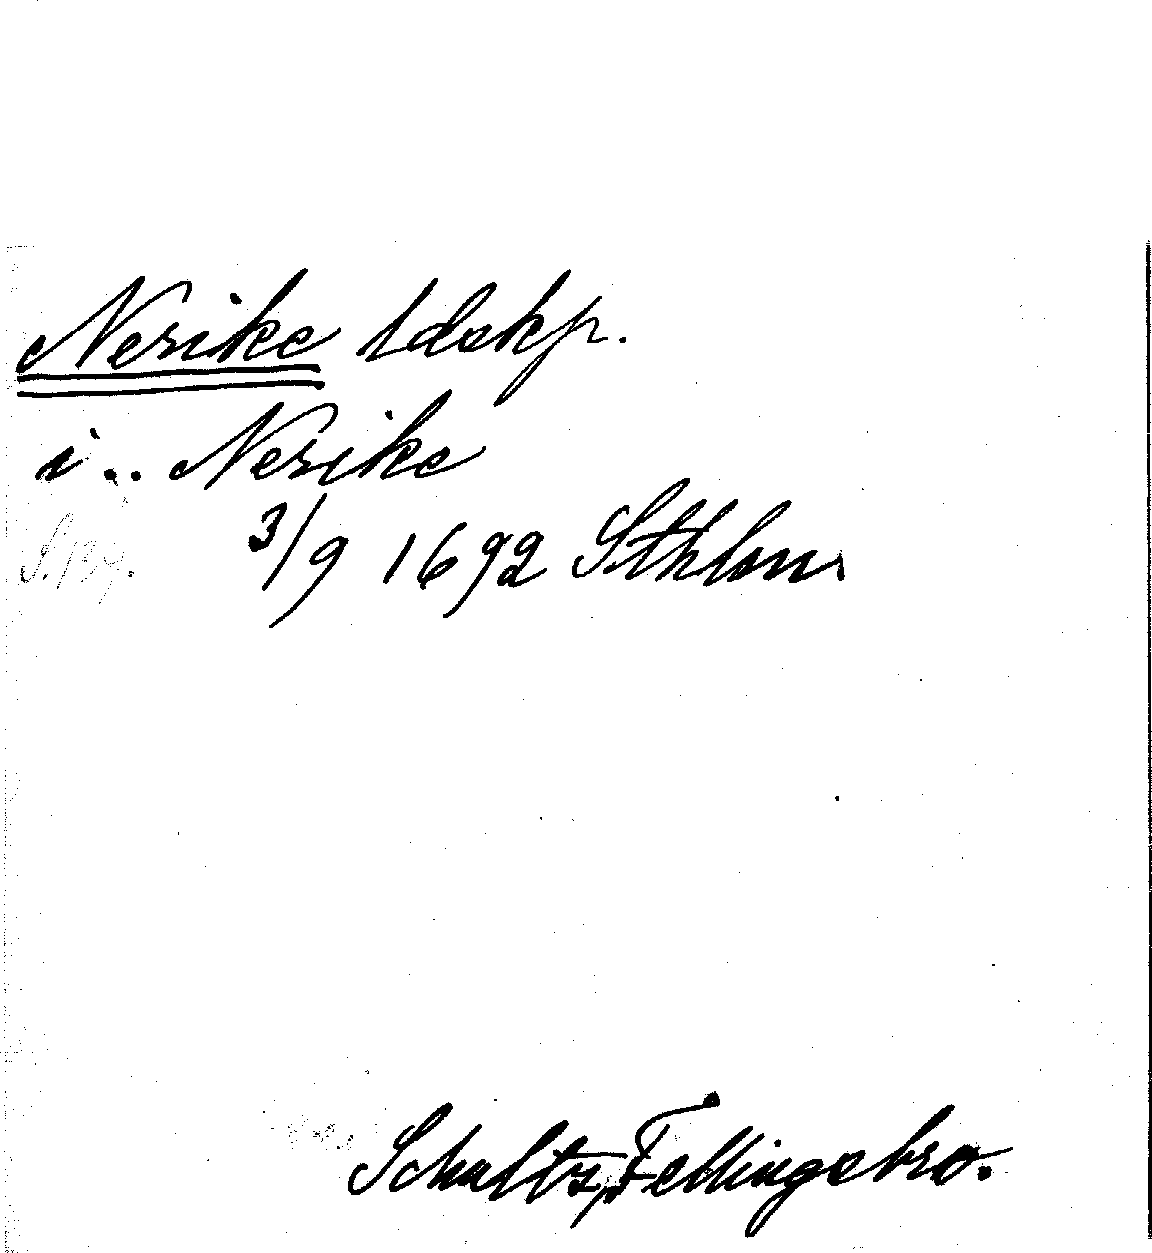 Nerike ldskp.
i .. Nerike
3/9 1692 Sthlm
Schultz, Fellingsbro.